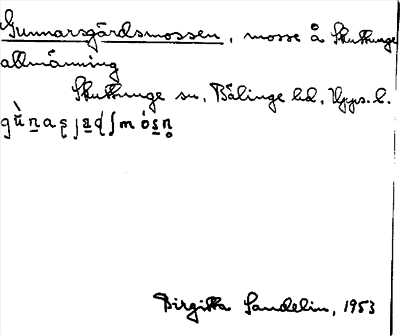 Gunnarsgårdsmossen, mosse å Skuttunge
allmänning
Skuttunge sn, Bälinge hd, Upps. l.
Birgitta Sandelin, 1953